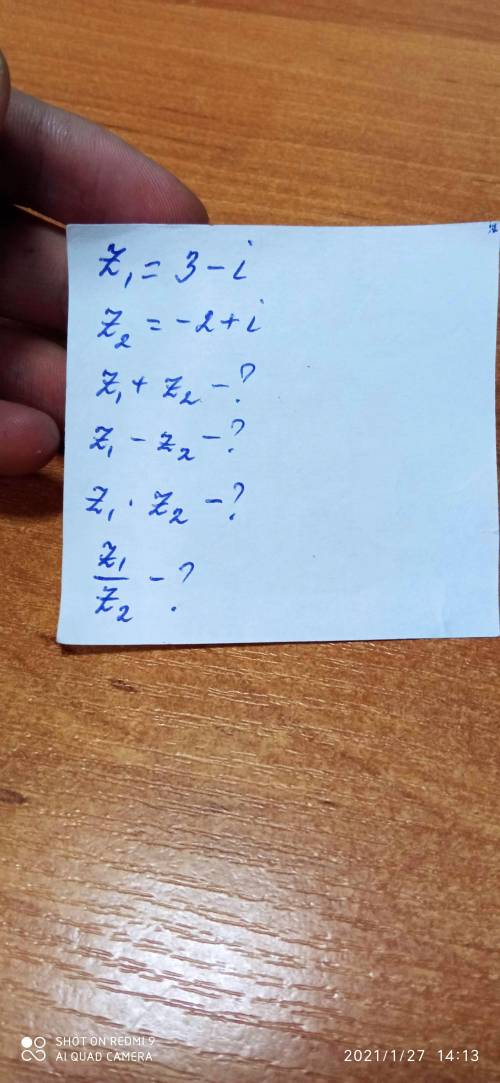 z₁ = 3 - i
z₂ = -2 + i
z₁ + z₂ - ?
z₁ - z₂ - ?
z₁ · z₂ - ?
z₁
z₂ - ?
SHOT ON REDMI 9
AI QUAD CAMERA
2021/1/27 14:13